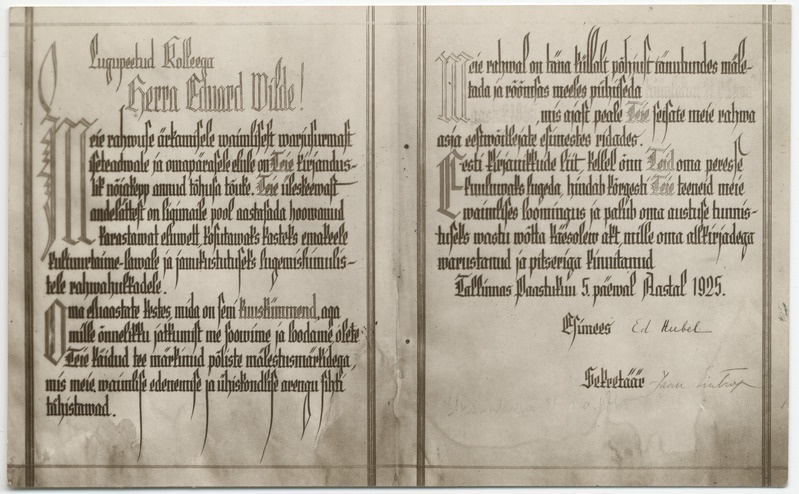 Lugupeetud Kolleega
Herra Eduard Wilde!
Meie rahwuse ärkamisele waimlisest warjusurmast
iseteadwale ja omapärasele elule on Teie kirjandus-
lik nõiakepp annud tõhusa tõuke. Teie üleskeewast
andelättest on ligimaile pool aastasada hoowanud
karastawat eluwett, kosutawaks kasteks emakeele
kultuurtaime-lawale ja janukustutuseks lugemishimulis-
tele rahwahulkadele.
Oma eluaastate kestes, mida on seni kuuskümmend, aga
mille õnnelikku jatkumist me soowime ja loodame, olete
Teie käidud tee märkinud põliste mälestusmärkidega,
mis meie waimlise edenemise ja ühiskondlise arengu sihti
tähistawad.
Meie rahwal on täna küllalt põhjust tänutundes mäle-
tada ja rõõmsas meeles pühitseda
, mis ajast peale Teie seisate meie rahwa
asja eestwõitlejate esimestes ridades.
Eesti kirjanikkude liit, kellel õnn Teid oma peresse
kuuluwaks lugeda, hindab kõrgesti Teie teeneid meie
waimlises loomingus ja palub oma austuse tunnis-
tuseks wastu wõtta käesolew akt, mille oma allkirjadega
warustanud ja pitseriga kinnitanud
Tallinnas Paastukuu 5. päewal Aastal 1925.
Esimees Ed Hubel
Sekretäär Jaan